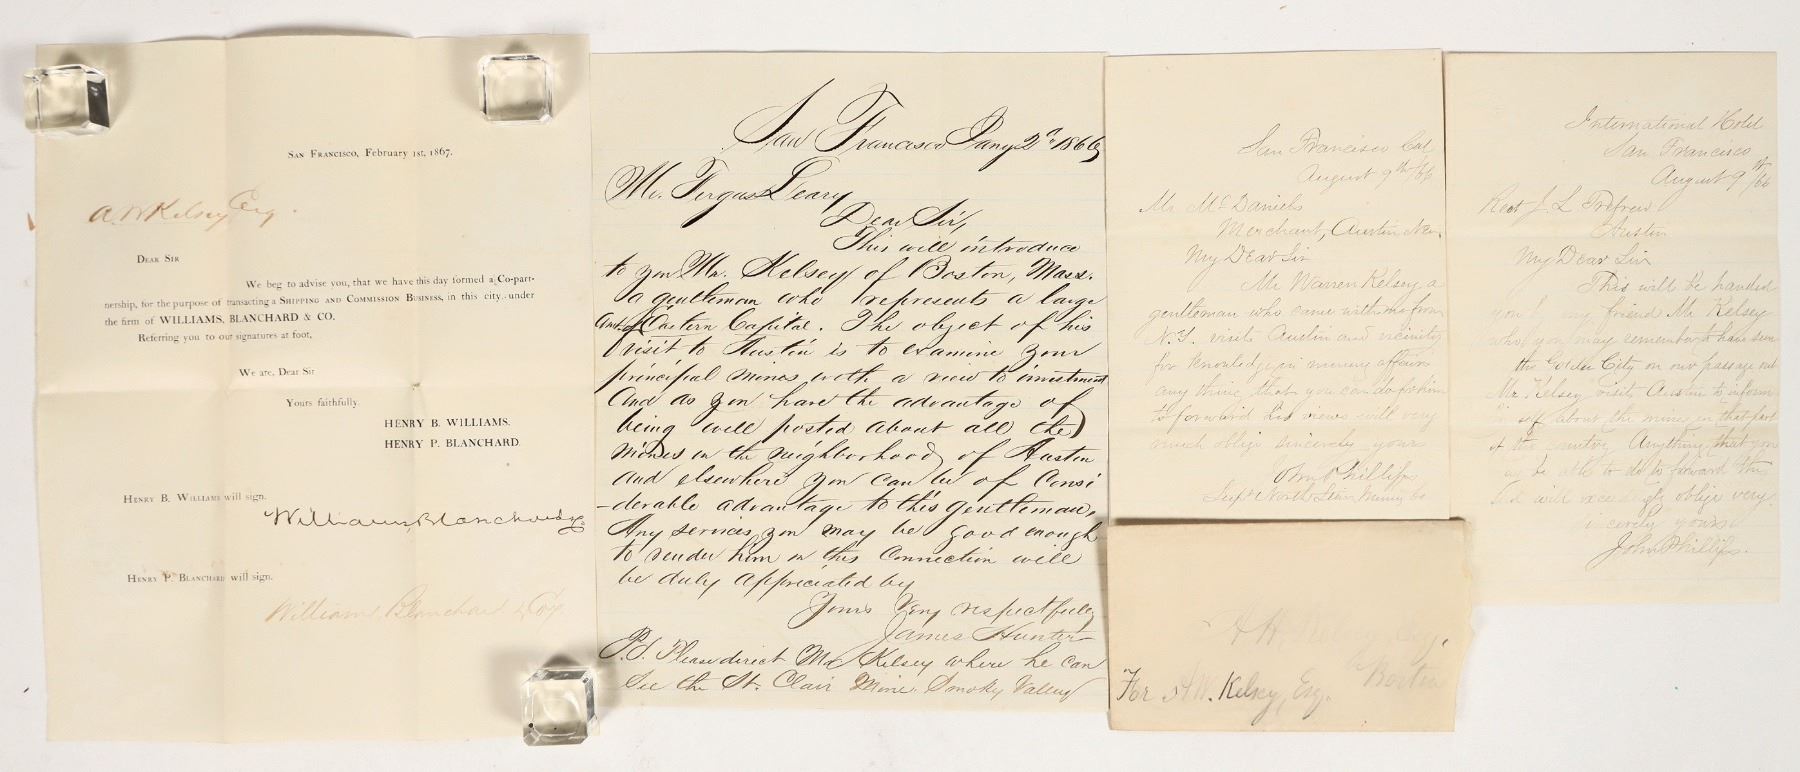 San Francisco, February 1st, 1867.
A W Kelsey Esq.
Dear Sir
We beg to advise you, that we have this day formed a Co-part-
nership, for the purpose of transacting a Shipping and Commission Business, in this city, under
the firm of WILLIAMS, BLANCHARD & CO.
Referring you to our signatures at foot,
We are, Dear Sir
Yours faithfully.
HENRY B. WILLIAMS.
HENRY P. BLANCHARD.
Henry B. Williams will sign.
Williams, Blanchard & Co
Henry P. Blanchard will sign.
Williams, Blanchard & Co.
San Francisco Jany 2d 1866
Mr. Fergus Leary
Dear Sir,
This will introduce
to you Mr. Kelsey of Boston, Mass.
a gentleman who represents a large
amt of Eastern Capital. The object of his
visit to Austin is to examine your
principal mines with a view to investment
And as you have the advantage of
being well posted about all the
Mines in the neighborhood of Austin
and elsewhere you can be of Consi
-derable advantage to this gentleman.
Any services you may be good enough
to render him in this Connection will
be duly appreciated by
Yours Very respectfully
James Hunter
P.S. Please direct Mr Kelsey where he can
See the St. Clair Mine. Smoky Valley
San Francisco Cal
August 9th /66
Mr McDaniels
Merchant, Austin Nev.
My Dear Sir
Mr Warren Kelsey a
gentleman who came with me from
N.Y. visits Austin and vicinity
for knowledge in mining affairs
any thing that you can do for him
to forward his views will very
much oblige sincerely yours
John Phillips
Supt North Star Mining Co
International Hotel
San Francisco
August 9th /66
J L
Austin
My Dear Sir
This will be handed
you by my friend Mr Kelsey
who you may remember to have seen
the Golden City on our passage out
Mr Kelsey visits Austin to inform
self about the mines in that part
of the country Anything that you
may be able to do to forward this
end will exceedingly oblige very
sincerely yours
John Phillips.
A W Kelsey Esq.
Boston
For A.W. Kelsey, Esq.